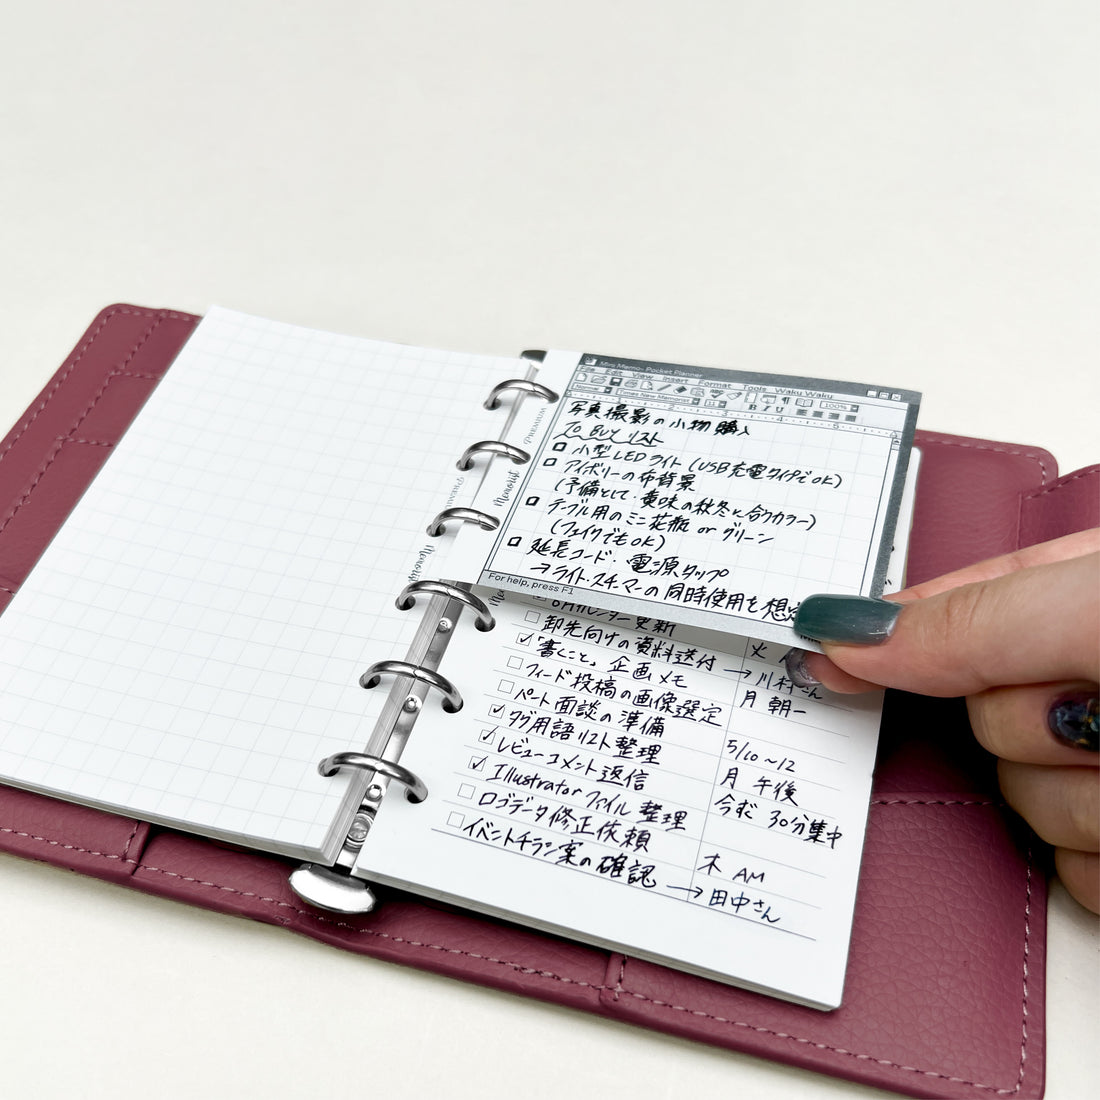 Mini Memo- Pocket Planner
File Edit View Insert Format Tools Waku Waku
Normal Times New Memories 11 B I U 100%
1 2 3 4 5
写真撮影の小物購入
To Buy リスト
小型LEDライト (USB充電タイプでOK)
アイボリーの布背景
(予備として、黄味の秋冬に合うカラー)
テーブル用のミニ花瓶 or グリーン
(フェイクでもOK)
延長コード・電源タップ
→ライト・スチーマーの同時使用を想定
For help, press F1
PREMIUM
Memoryt
PREMIUM
Memoryt
更新
卸先向けの資料送付 → 川村さん
「書くこと」企画メモ 月 朝一
フィード投稿の画像選定
パート面談の準備 5/10～12
タグ用語リスト整理 月 午後
レビューコメント返信 今すぐ 30分集中
Illustratorファイル整理
ロゴデータ修正依頼 木 AM
イベントチラシ案の確認 → 田中さん